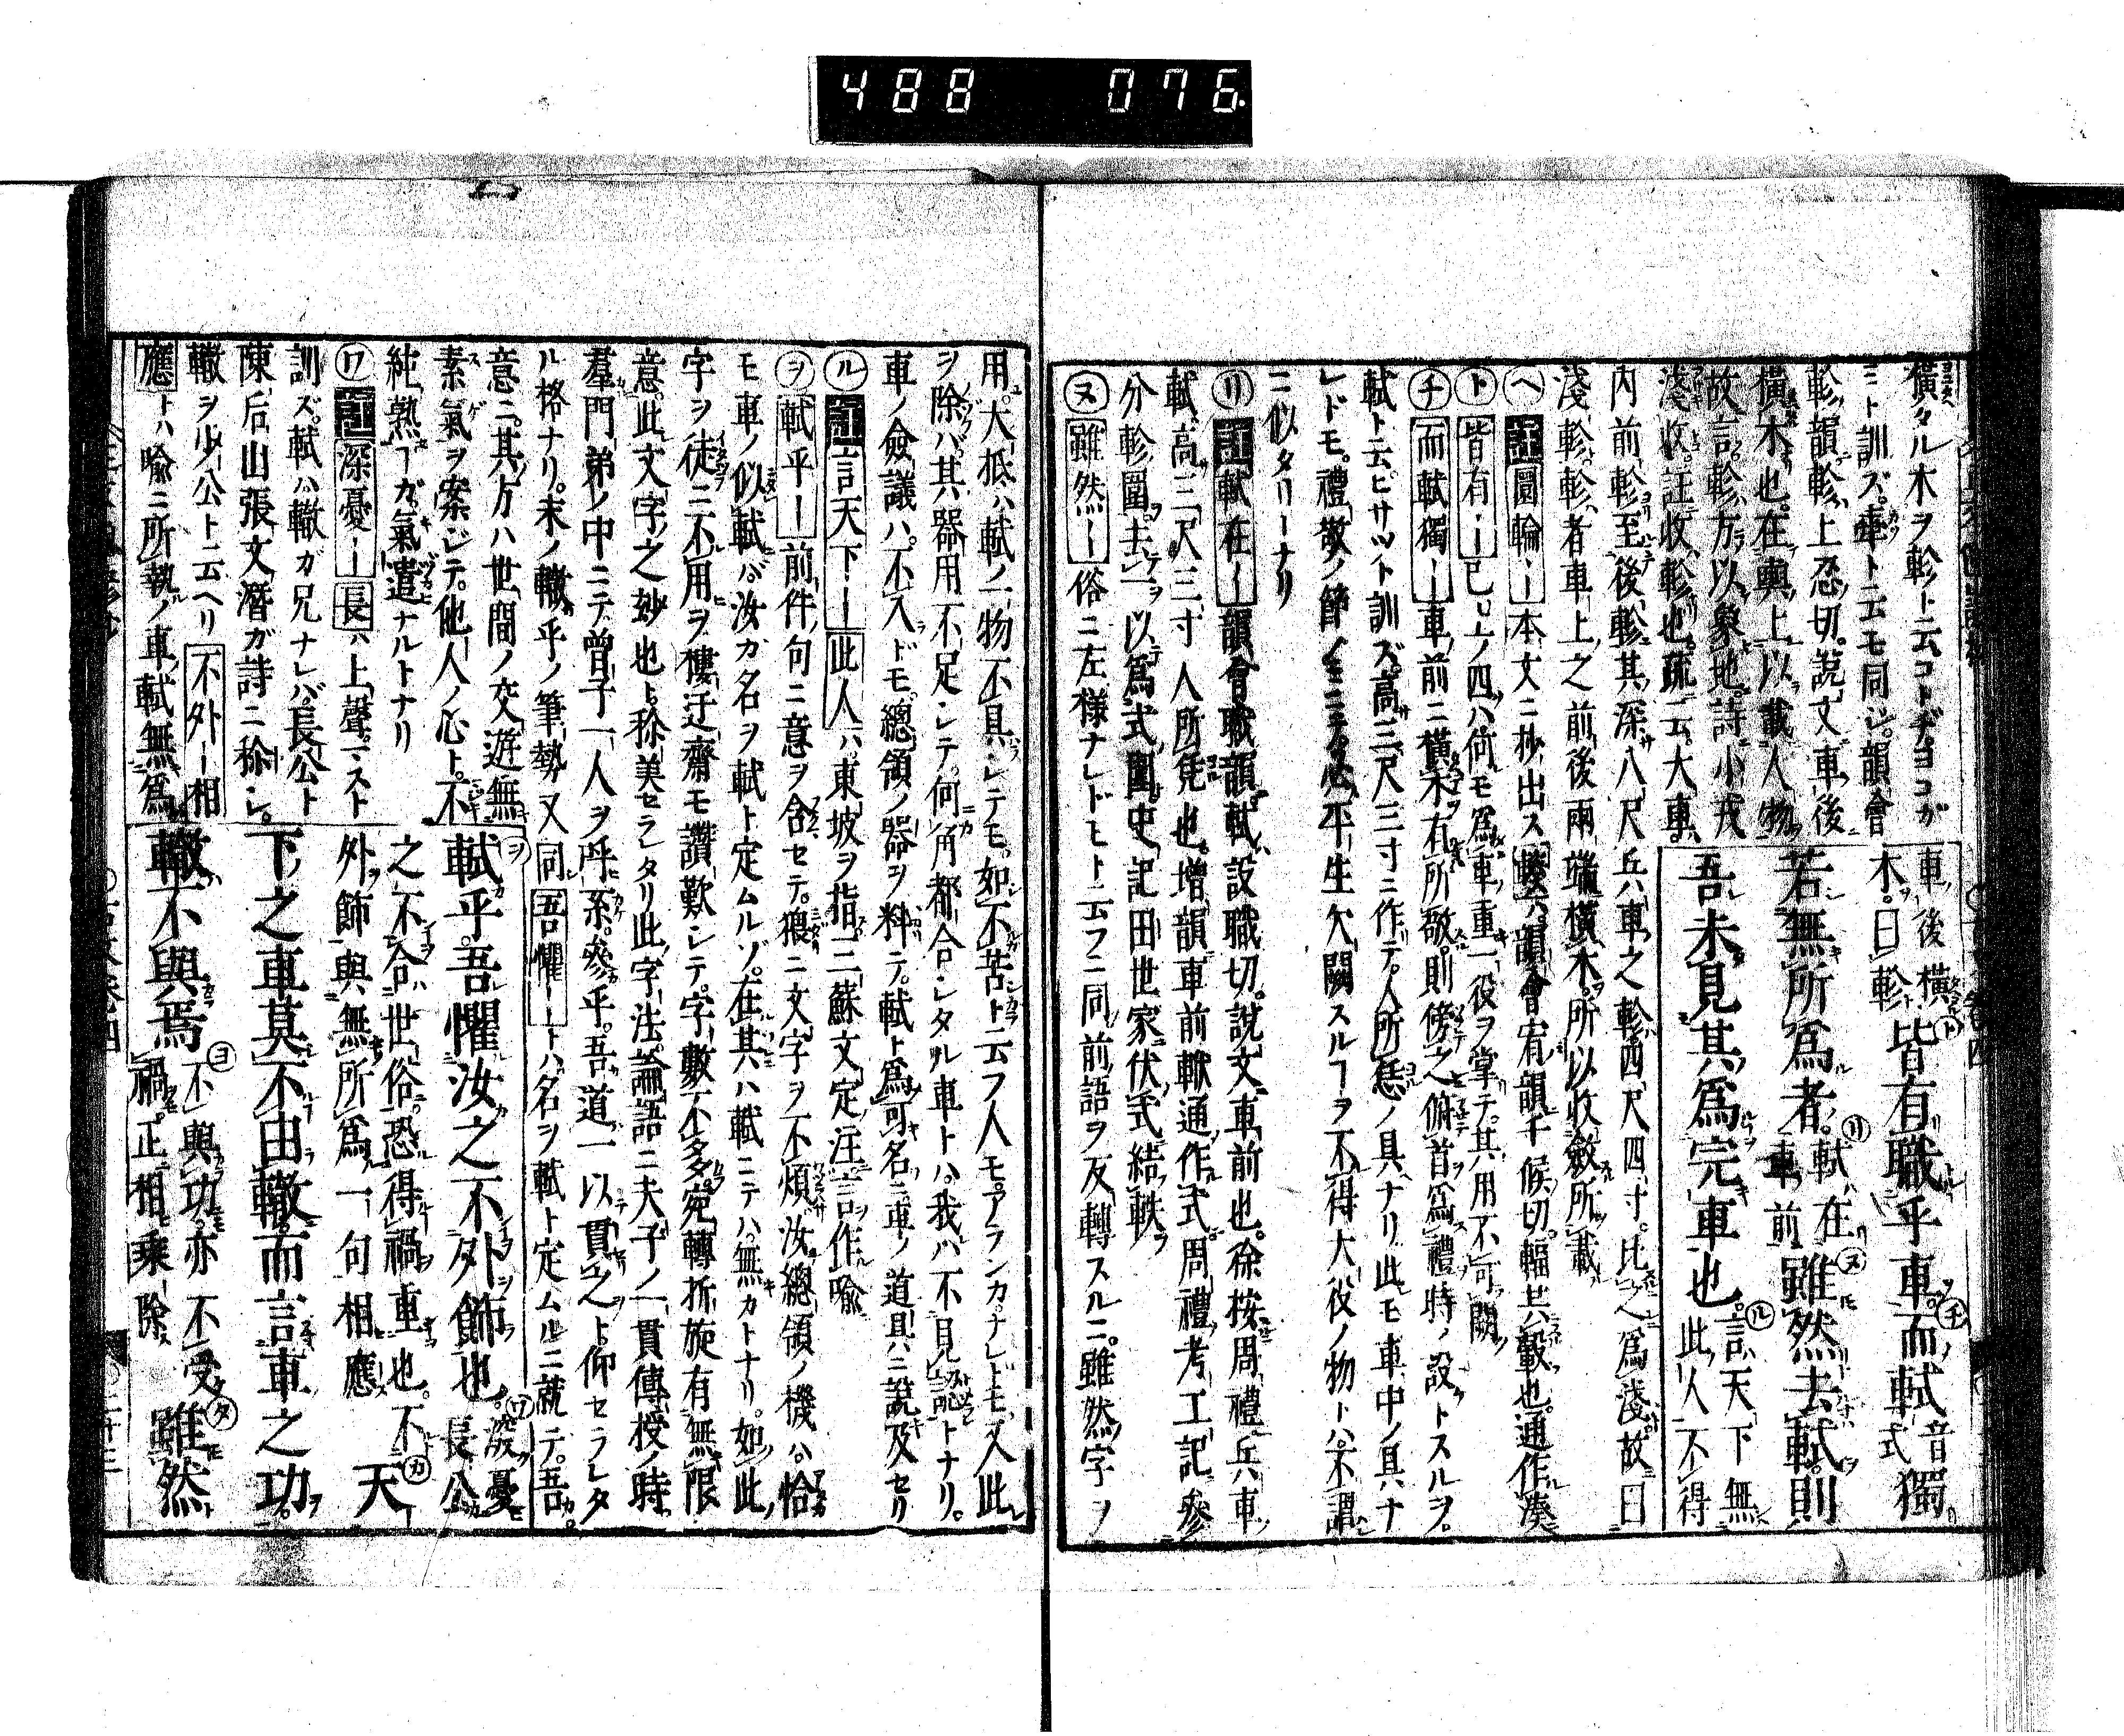 488 076
橫タル木ヲ軫ト云コトヂヨコガ
ミト訓ズ。車ト云モ同シ。韻會
軫韻軫、上忍切。說文車後
橫木也。在輿上以載人物
故言。軫方以象地。詩小戎
淺收。註收軫也。疏云大車
內前軫至後軫其深八尺兵車之軫四尺四寸。比之爲淺故曰
淺軫。軫者車上之前後兩端橫木。所以收斂所載
車後橫
木。曰軫
皆有職乎車。而軾音式獨
若無所爲者。軾在車前雖然去軾。則
吾未見其爲完車也。言天下無此人不得
ヘ註圓輪ー本文ニ抄出ス輳ハ韻會宥韻千候切。輻共轂也。通作湊
ト皆有ー已上ノ四ハ何モ爲車重一役ヲ掌テ。其用不可闕
チ而軾獨ー車前ニ橫木有所敬。則傍之俯首爲禮時ノ設トスルヲ。
軾ト云ヒサツト訓ズ。高三尺三寸ニ作テ。人所憑ノ具ナリ此モ車中ノ具ナ
レドモ。禮敬ノ節ノミニテ。必平生欠闕スルヿヲ不得大役ノ物トハ。不謂
ニ似タリーナリ
リ註軾在ー韻會職韻軾、設職切。說文車前也。徐按周禮兵車
軾高三尺三寸人所凭也。增韻車前軾通作式周禮考工記參
分軫圍去一以爲式圍史記田世家伏式結軼
ヌ雖然ー俗ニ左樣ナレドモト云フニ同前語ヲ反轉スルニ。雖然字ヲ
用。大抵ハ軾ノ一物不具シテモ。如不苦ト云フ人モアランカ。ナレドモ又此
ヲ除バ。其器用不足シテ。何角都合シタル車トハ。我ハ不見ト云トナリ。
車ノ僉議ハ。不入ドモ。總領ノ器ヲ料テ。軾ト爲可名ニ。車ノ道具ニ說及セリ
ル註言天下ー此人ハ東坡ヲ指三蘇文定注言作喩
ヲ軾乎ー前件句ニ意ヲ含セテ。猥ニ文字ヲ不煩汝總領ノ機ハ恰
モ車ノ似軾バ汝カ名ヲ軾ト定ムルゾ。在其ハ軾ニテハ無カトナリ。如此
字ヲ徒ニ不用ヲ樓迂齋モ讚歎シテ。字數不多宛轉折旋有無限
意。此文字之妙也ト。稱美セラレタリ此字法論語ニ夫子ノ一貫傳授ノ時。
羣門弟ノ中ニテ曾子一人ヲ呼系。參乎。吾道一以貫之ト仰セラレタ
ル格ナリ。末ノ轍乎ノ筆勢又同吾懼ートハ名ヲ軾ト定ムルニ就テ。吾
意ニ。其方ハ世間ノ交遊無
素氣ヲ案シテ。他人ノ心ト。不
純熟ヿガ。氣遣ナルトナリ
ワ註深憂ー長ハ上聲。マスト
訓ズ。軾ハ轍ガ兄ナレバ。長公ト
陳后山張文潛ガ詩ニ稱シ。
轍ヲ少公ト云ヘリ不外ー相
應トハ喩ニ所執ノ車軾無爲
軾乎。吾懼汝之不外飾也。深憂長公
之不合世俗。恐得禍車也。不
外飾與無所爲一句相應
天
下之車莫不由轍。而言車之功。
轍不與焉不與功。亦不受
禍。正相乘除雖然